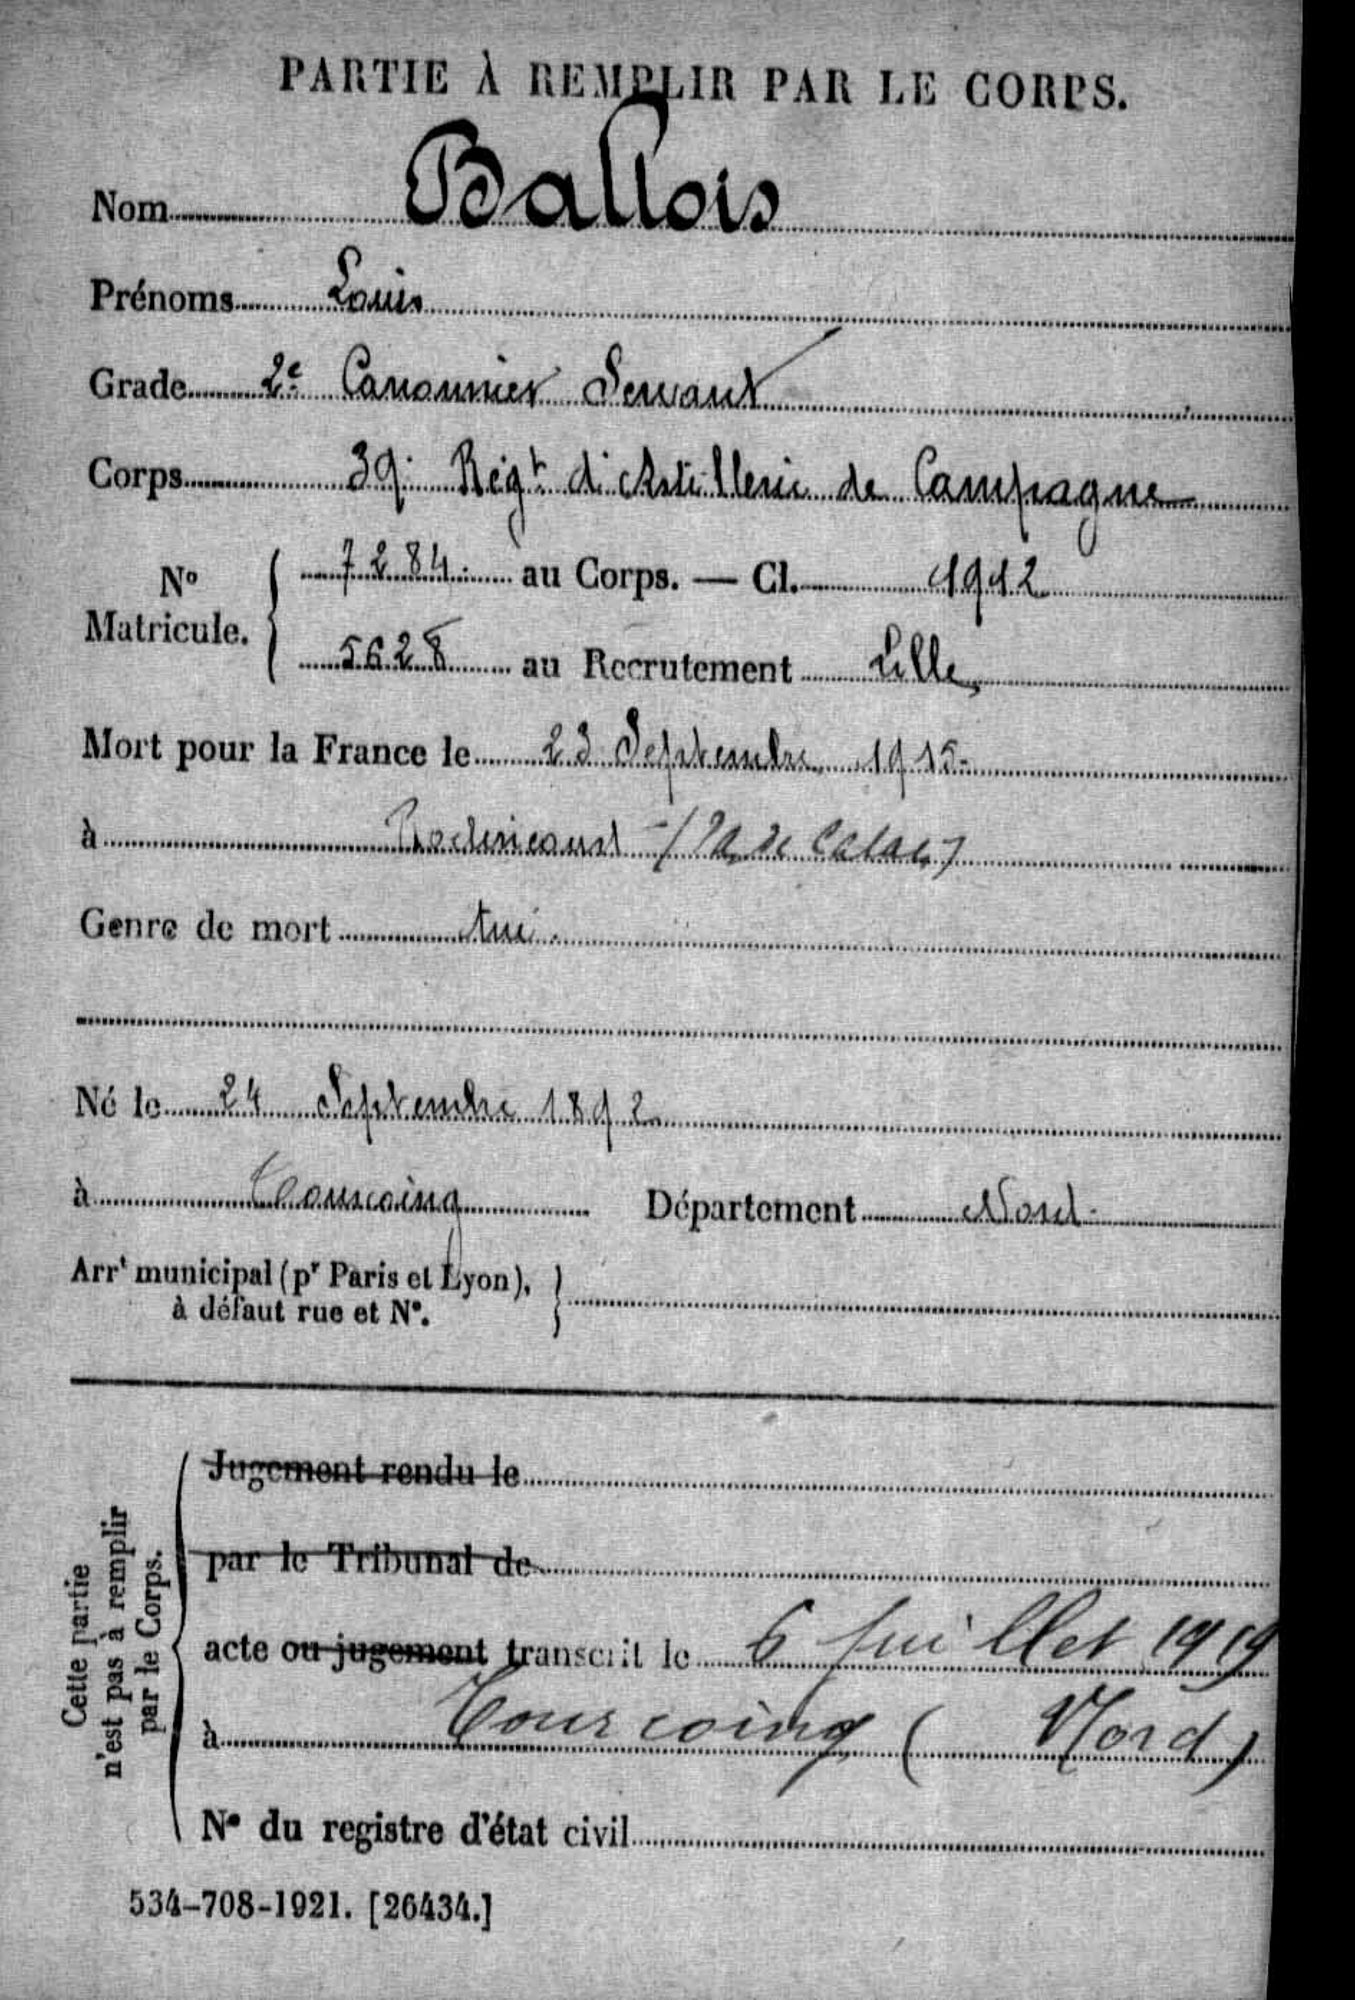 PARTIE À REMPLIR PAR LE CORPS.
Nom Ballois
Prénoms Louis
Grade 2e Canonnier Servant
Corps 39e Régt d'Artillerie de Campagne
No Matricule. 7284 au Corps. — Cl. 1912
5628 au Recrutement Lille
Mort pour la France le 23 Septembre 1915
à Roclincourt (Pas de Calais)
Genre de mort tué
Né le 24 Septembre 1892
à Tourcoing Département Nord
Arrt municipal (pr Paris et Lyon),
à défaut rue et No.
Cette partie
n'est pas à remplir
par le Corps.
Jugement rendu le
par le Tribunal de
acte ou jugement transcrit le 6 juillet 1919
à Tourcoing (Nord)
No du registre d'état civil
534-708-1921. [26434.]